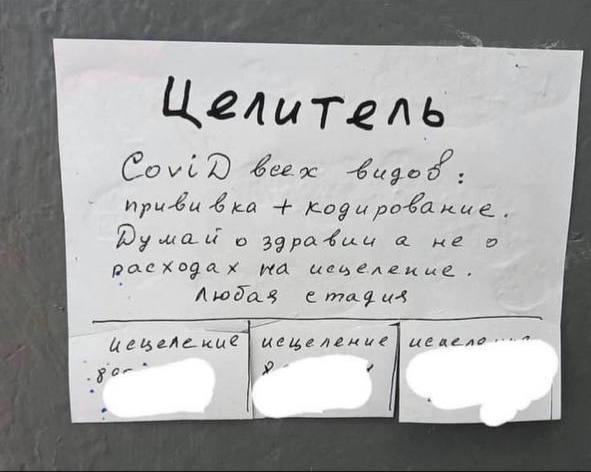 Целитель
CoviD всех видов:
прививка + кодирование.
Думай о здравии а не о
расходах на исцеление.
Любая стадия
исцеление исцеление исцеление